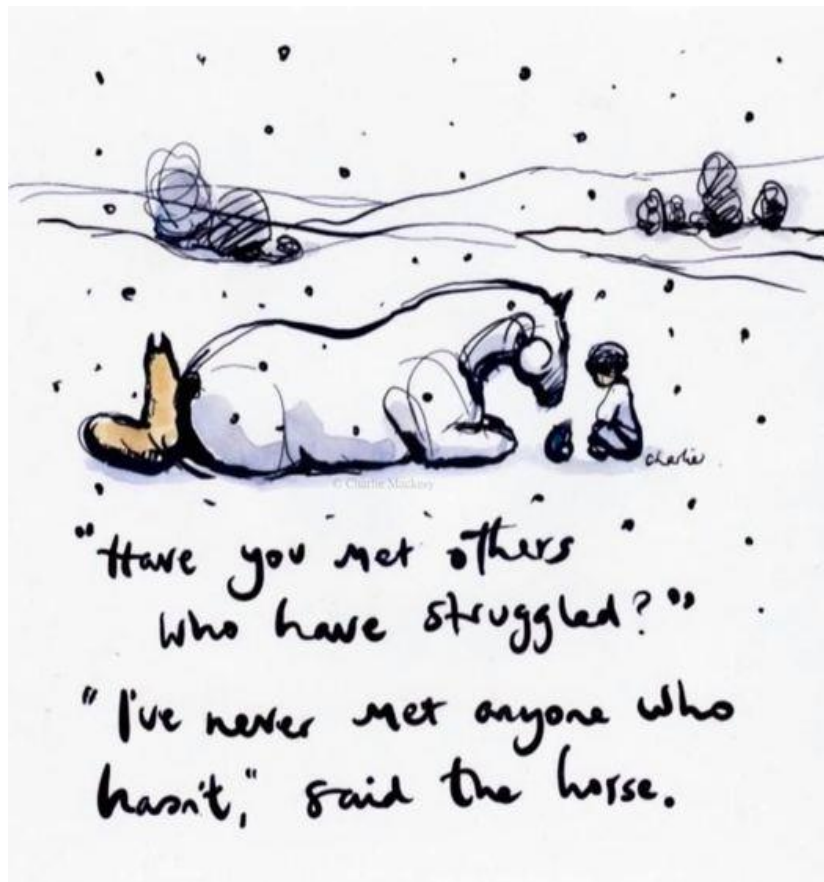 charlie
© Charlie Mackesy
"Have you met others
who have struggled?"
"I've never met anyone who
hasn't," said the horse.